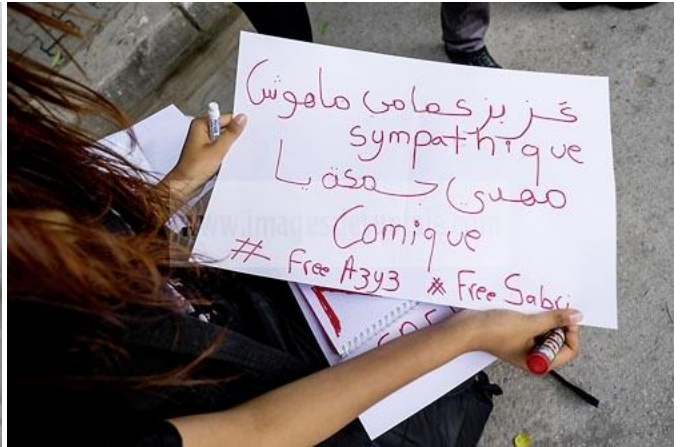 عزيز عمامي ماهوش
sympathique
مهدي جمعة يا
Comique
# Free A3y3 # Free Sabri